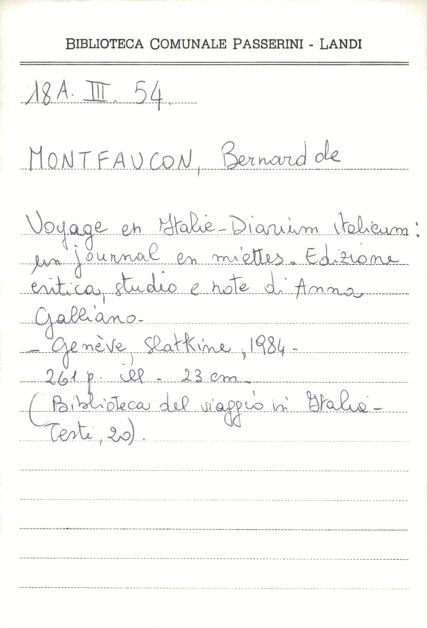 BIBLIOTECA COMUNALE PASSERINI - LANDI
18A. III. 54.
MONTFAUCON, Bernard de
Voyage en Italie - Diarium italicum:
un journal en miettes. Edizione
critica, studio e note di Anna
Galliano.
- Genève, Slatkine, 1984 -
261 p. ill - 23 cm
(Biblioteca del viaggio in Italia -
Testi, 20).